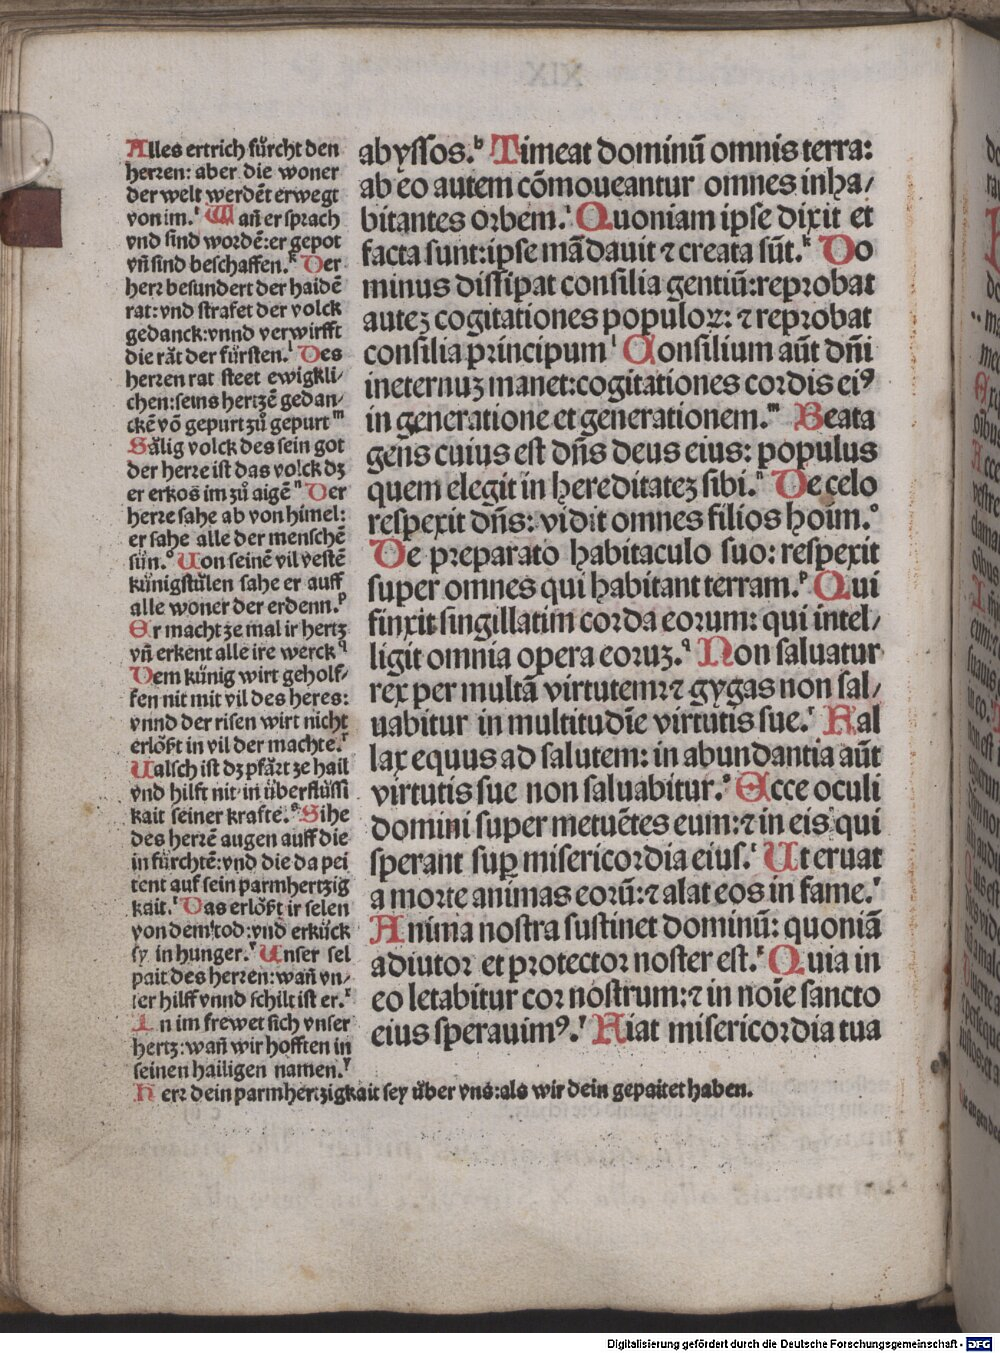 Alles ertrich fürcht den
herren: aber die woner
der welt werdēt erwegt
von im.ⁱ Wañ er sprach
vnd sind wordē: er gepot
vñ sind beschaffen.ᵏ Der
herr besundert der haidē
rat: vnd strafet der volck
gedanck: vnnd verwirfft
die rät der fürsten.ˡ Des
herren rat steet ewigkli/
chen: seins hertzē gedan/
ckē vō gepurt zů gepurt ᵐ
Sälig volck des sein got
der herre ist das volck dz
er erkoš im zů aigē ⁿ Der
herre sahe ab von himel:
er sahe alle der menschē
sün.ᵒ Uon seinē vil vestē
künigstůlen sahe er auff
alle woner der erdenn.ᵖ
Er macht ze mal ir hertz
vñ erkent alle ire werck ᑫ
Dem künig wirt geholf/
fen nit mit vil des heres:
vnnd der risen wirt nicht
erlößt in vil der machte.ʳ
Ualsch ist dz pfärt ze hail
vnd hilft nit in überflüssi
kait seiner krafte.ˢ Sihe
des herrē augen auff die
in fürchtē: vnd die da pei
tent auf sein parmhertzig
kait.ᵗ Das erlößt ir selen
von dem tod: vnd erkück
sy in hunger.ᵛ Unser sel
pait des herren: wañ vn/
ser hilff vnnd schilt ist er.ˣ
In im frewet sich vnser
hertz: wañ wir hofften in
seinen hailigen namen.ʸ
Herr dein parmhertzigkait sey über vns: als wir dein gepaitet haben.
abyssos.ʰ Timeat dominū omnis terra:
ab eo autem cōmoueantur omnes inha/
bitantes orbem.ⁱ Quoniam ipse dixit et
facta sunt: ipse mādauit ⁊ creata sūt.ᵏ Do
minus dissipat consilia gentiū: reprobat
autez cogitationes populoꝝ: ⁊ reprobat
consilia principum ˡ Consilium aūt dñi
ineternuz manet: cogitationes cordis eiꝰ
in generatione et generationem.ᵐ Beata
gens cuius est dñs deus eius: populus
quem elegit in hereditatez sibi.ⁿ De celo
respexit dñs: vidit omnes filios hoim̄.ᵒ
De preparato habitaculo suo: respexit
super omnes qui habitant terram.ᵖ Qui
finxit singillatim corda eorum: qui intel/
ligit omnia opera eoruz.ᑫ Non saluatur
rex per multā virtutem: ⁊ gygas non sal/
uabitur in multitudīe virtutis sue.ʳ Fal
lax equus ad salutem: in abundantia aūt
virtutis sue non saluabitur.ˢ Ecce oculi
domini super metuētes eum: ⁊ in eis qui
sperant suꝑ misericordia eius.ᵗ Ut eruat
a morte animas eorū: ⁊ alat eos in fame.ᵛ
Anima nostra sustinet dominū: quoniā
adiutor et protector noster est.ˣ Quia in
eo letabitur cor nostrum: ⁊ in noīe sancto
eius sperauimꝰ.ʸ Fiat misericordia tua
Digitalisierung gefördert durch die Deutsche Forschungsgemeinschaft - DFG